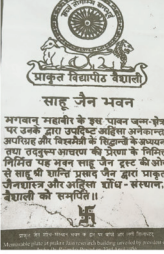 प्राकृत विद्यापीठ वैशाली
साहू जैन भवन
भगवान महावीर के इस पावन जन्म-क्षेत्र
पर उनके द्वारा उपदिष्ट अहिंसा अनेकान्त
अपरिग्रह और विश्वमैत्री के सिद्धान्तों के अध्ययन
तथा तदनुरूप आचरण की प्रेरणा के निमित्त
निर्मित यह भवन साहू जैन ट्रस्ट की ओर
से साहू श्री शान्ति प्रसाद जैन द्वारा प्राकृत
जैनशास्त्र और अहिंसा शोध-संस्थान
वैशाली को समर्पित।।